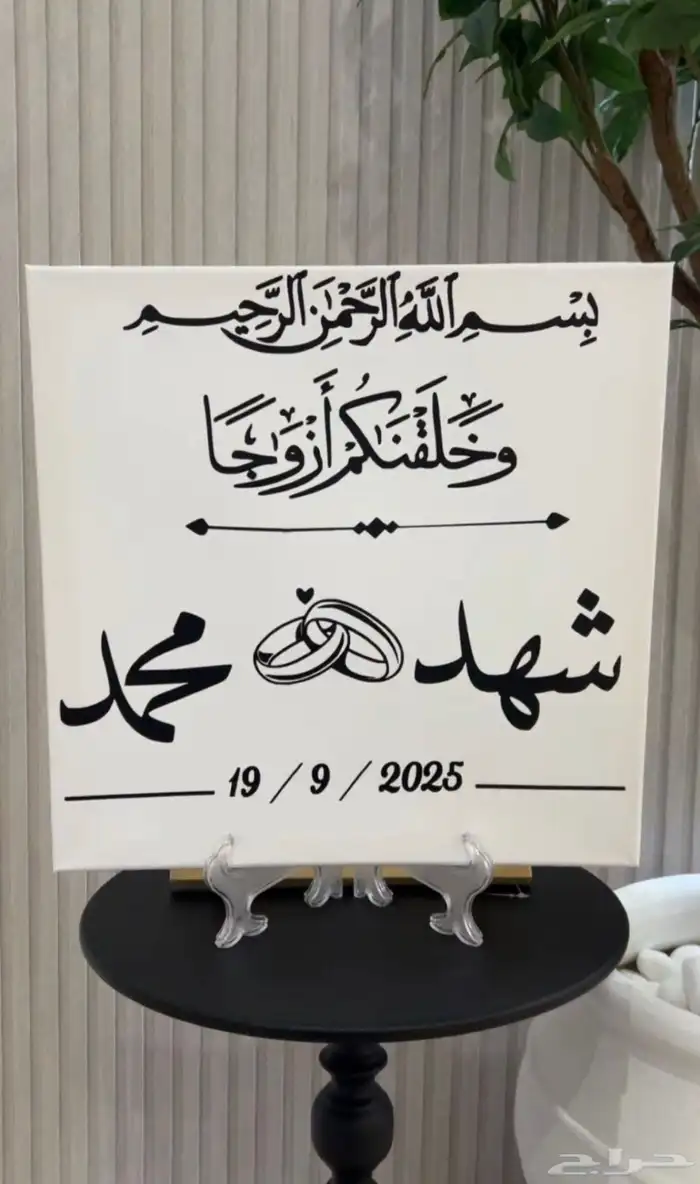 بِسْمِ اللَّهِ الرَّحْمَٰنِ الرَّحِيمِ
وَخَلَقْنَاكُمْ أَزْوَاجًا
شهد محمد
19 / 9 / 2025
حراج